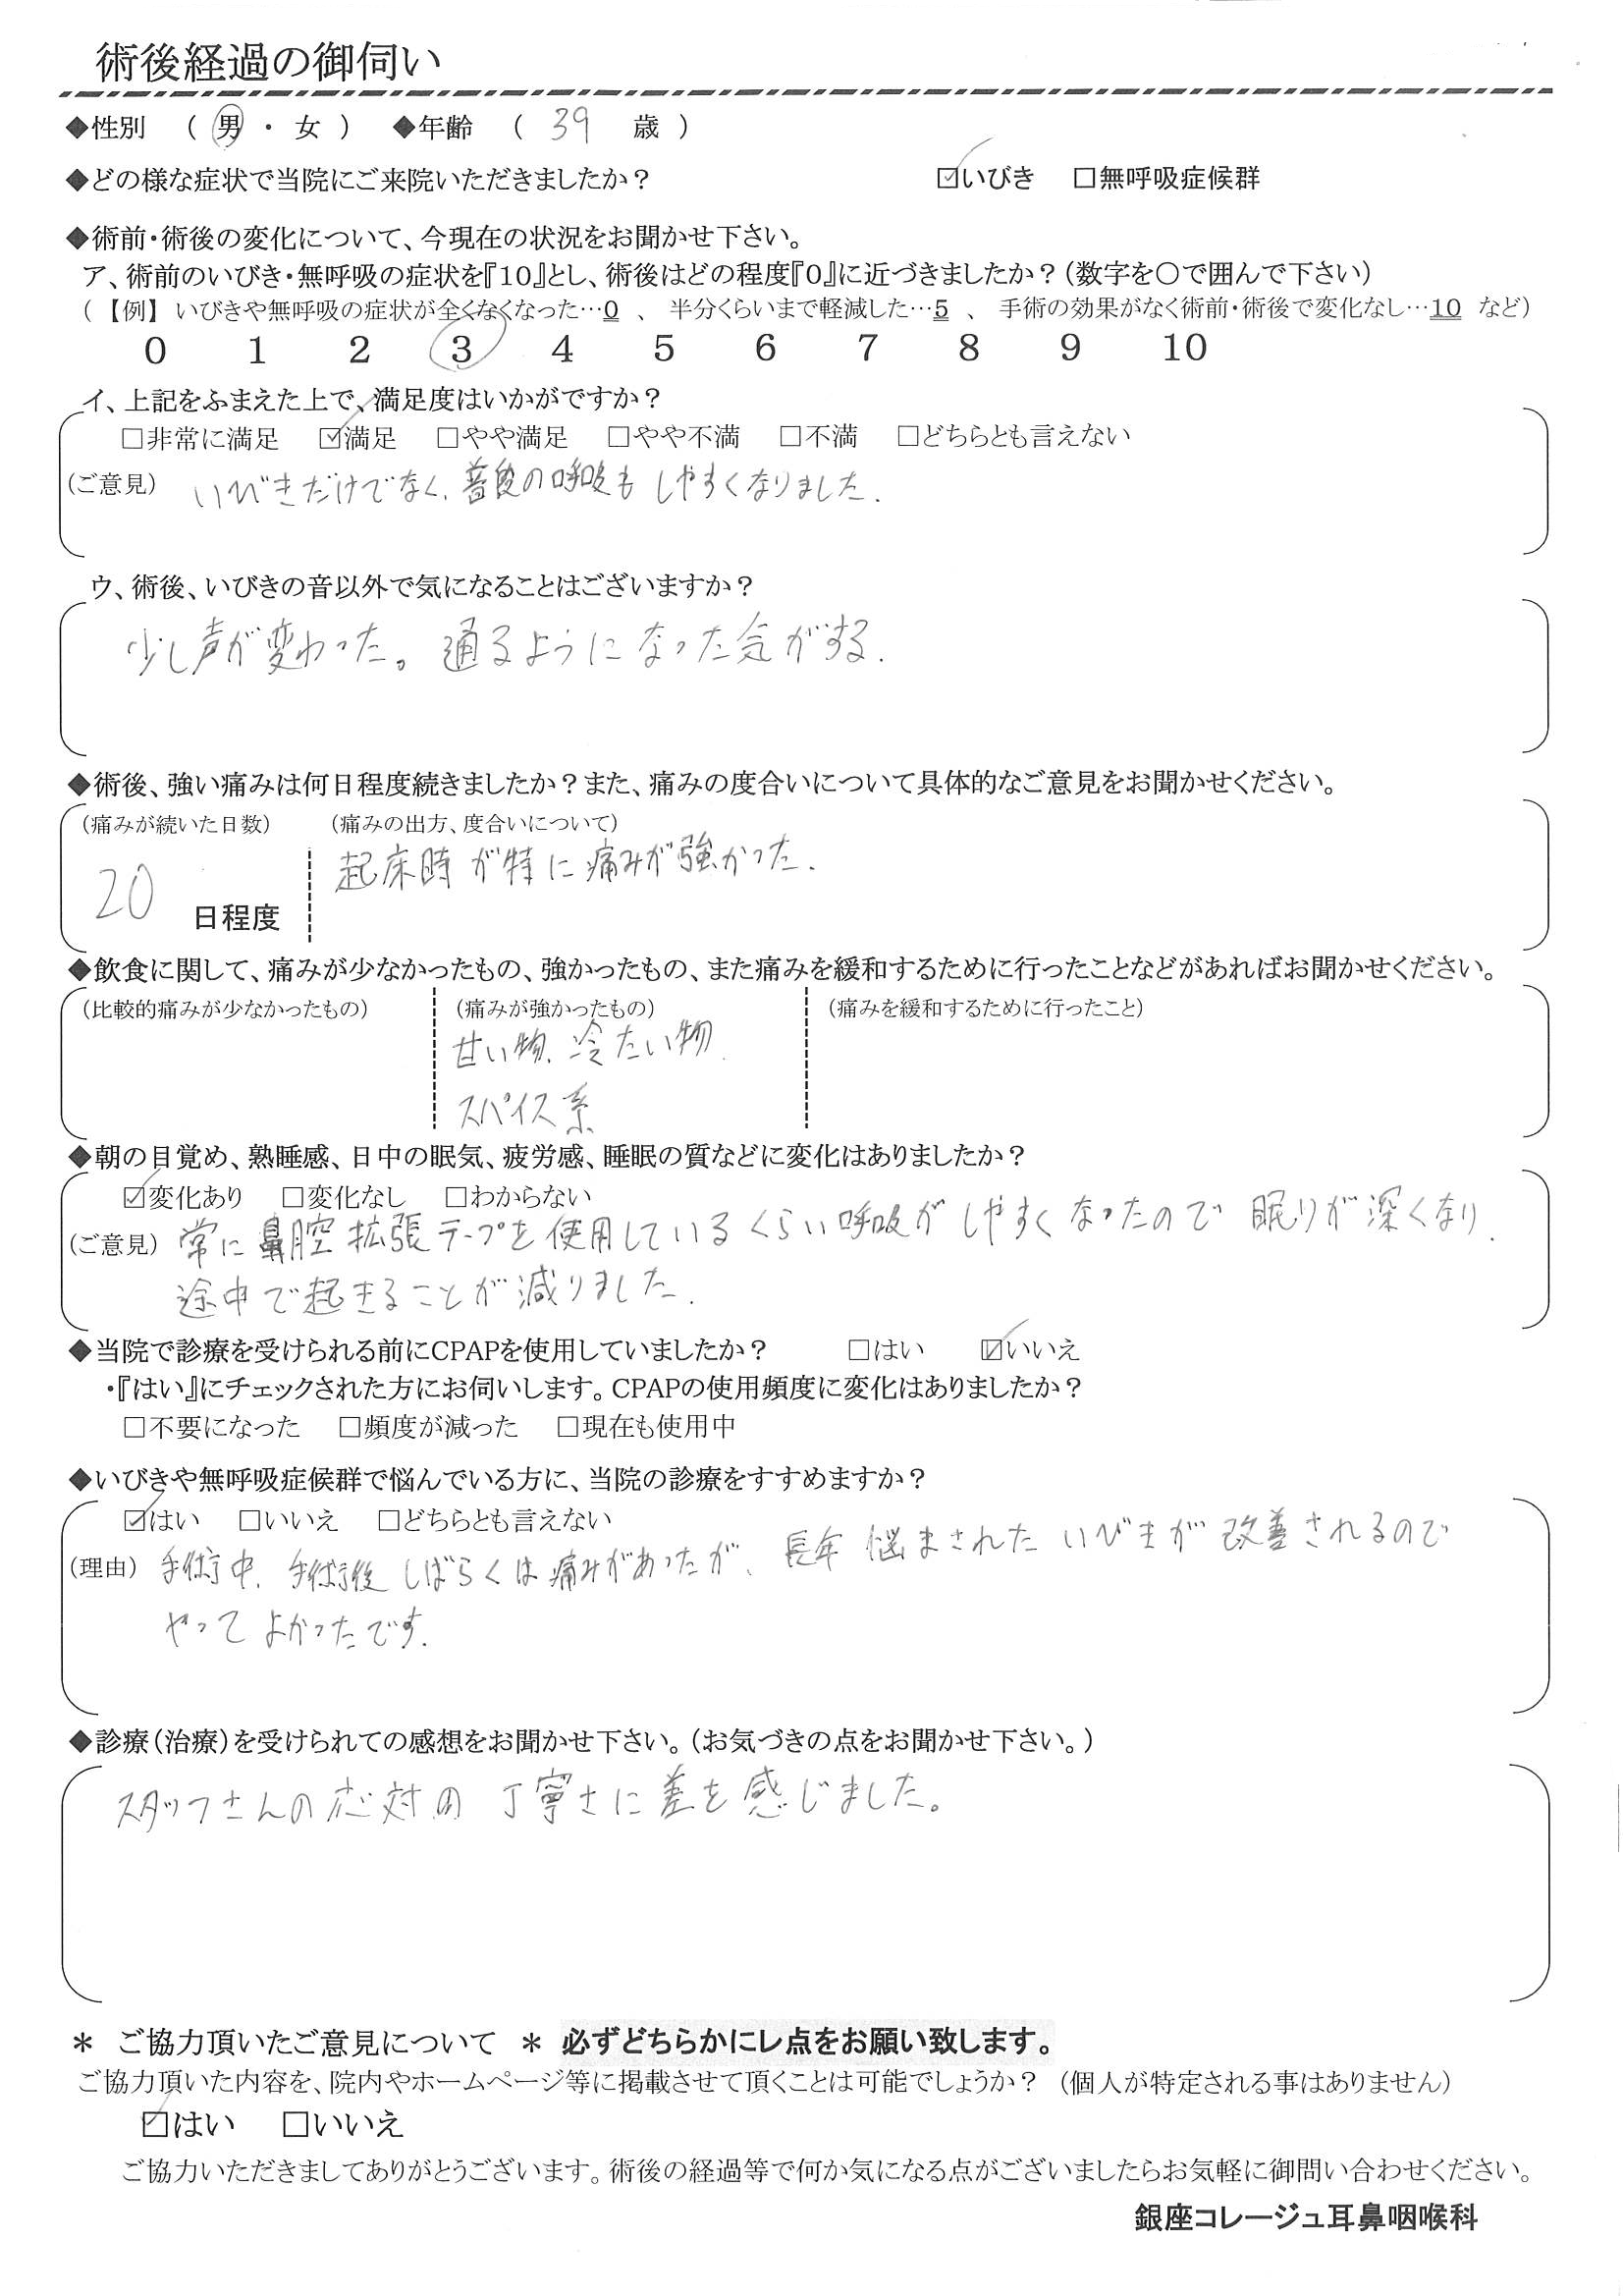 術後経過の御伺い
◆性別 ( 男 ・ 女 ) ◆年齢 ( 39 歳 )
◆どの様な症状で当院にご来院いただきましたか? ☑いびき □無呼吸症候群
◆術前・術後の変化について、今現在の状況をお聞かせ下さい。
ア、術前のいびき・無呼吸の症状を『10』とし、術後はどの程度『0』に近づきましたか?(数字を○で囲んで下さい)
(【例】いびきや無呼吸の症状が全くなくなった…0 、 半分くらいまで軽減した…5 、 手術の効果がなく術前・術後で変化なし…10 など)
0 1 2 3 4 5 6 7 8 9 10
イ、上記をふまえた上で、満足度はいかがですか?
□非常に満足 ☑満足 □やや満足 □やや不満 □不満 □どちらとも言えない
(ご意見) いびきだけでなく、普段の呼吸もしやすくなりました.
ウ、術後、いびきの音以外で気になることはございますか?
少し声が変わった。通るようになった気がする.
◆術後、強い痛みは何日程度続きましたか?また、痛みの度合いについて具体的なご意見をお聞かせください。
(痛みが続いた日数) (痛みの出方、度合いについて)
20 日程度 起床時が特に痛みが強かった.
◆飲食に関して、痛みが少なかったもの、強かったもの、また痛みを緩和するために行ったことなどがあればお聞かせください。
(比較的痛みが少なかったもの) (痛みが強かったもの) (痛みを緩和するために行ったこと)
甘い物、冷たい物.
スパイス系
◆朝の目覚め、熟睡感、日中の眠気、疲労感、睡眠の質などに変化はありましたか?
☑変化あり □変化なし □わからない
(ご意見) 常に鼻腔拡張テープを使用しているくらい呼吸がしやすくなったので眠りが深くなり、
途中で起きることが減りました.
◆当院で診療を受けられる前にCPAPを使用していましたか? □はい ☑いいえ
・『はい』にチェックされた方にお伺いします。CPAPの使用頻度に変化はありましたか?
□不要になった □頻度が減った □現在も使用中
◆いびきや無呼吸症候群で悩んでいる方に、当院の診療をすすめますか?
☑はい □いいえ □どちらとも言えない
(理由) 手術中、手術後しばらくは痛みがあったが、長年悩まされたいびきが改善されるので
やってよかったです.
◆診療(治療)を受けられての感想をお聞かせ下さい。(お気づきの点をお聞かせ下さい。)
スタッフさんの応対の丁寧さに差を感じました。
＊ ご協力頂いたご意見について ＊ 必ずどちらかにレ点をお願い致します。
ご協力頂いた内容を、院内やホームページ等に掲載させて頂くことは可能でしょうか? (個人が特定される事はありません)
☑はい □いいえ
ご協力いただきましてありがとうございます。術後の経過等で何か気になる点がございましたらお気軽に御問い合わせください。
銀座コレージュ耳鼻咽喉科